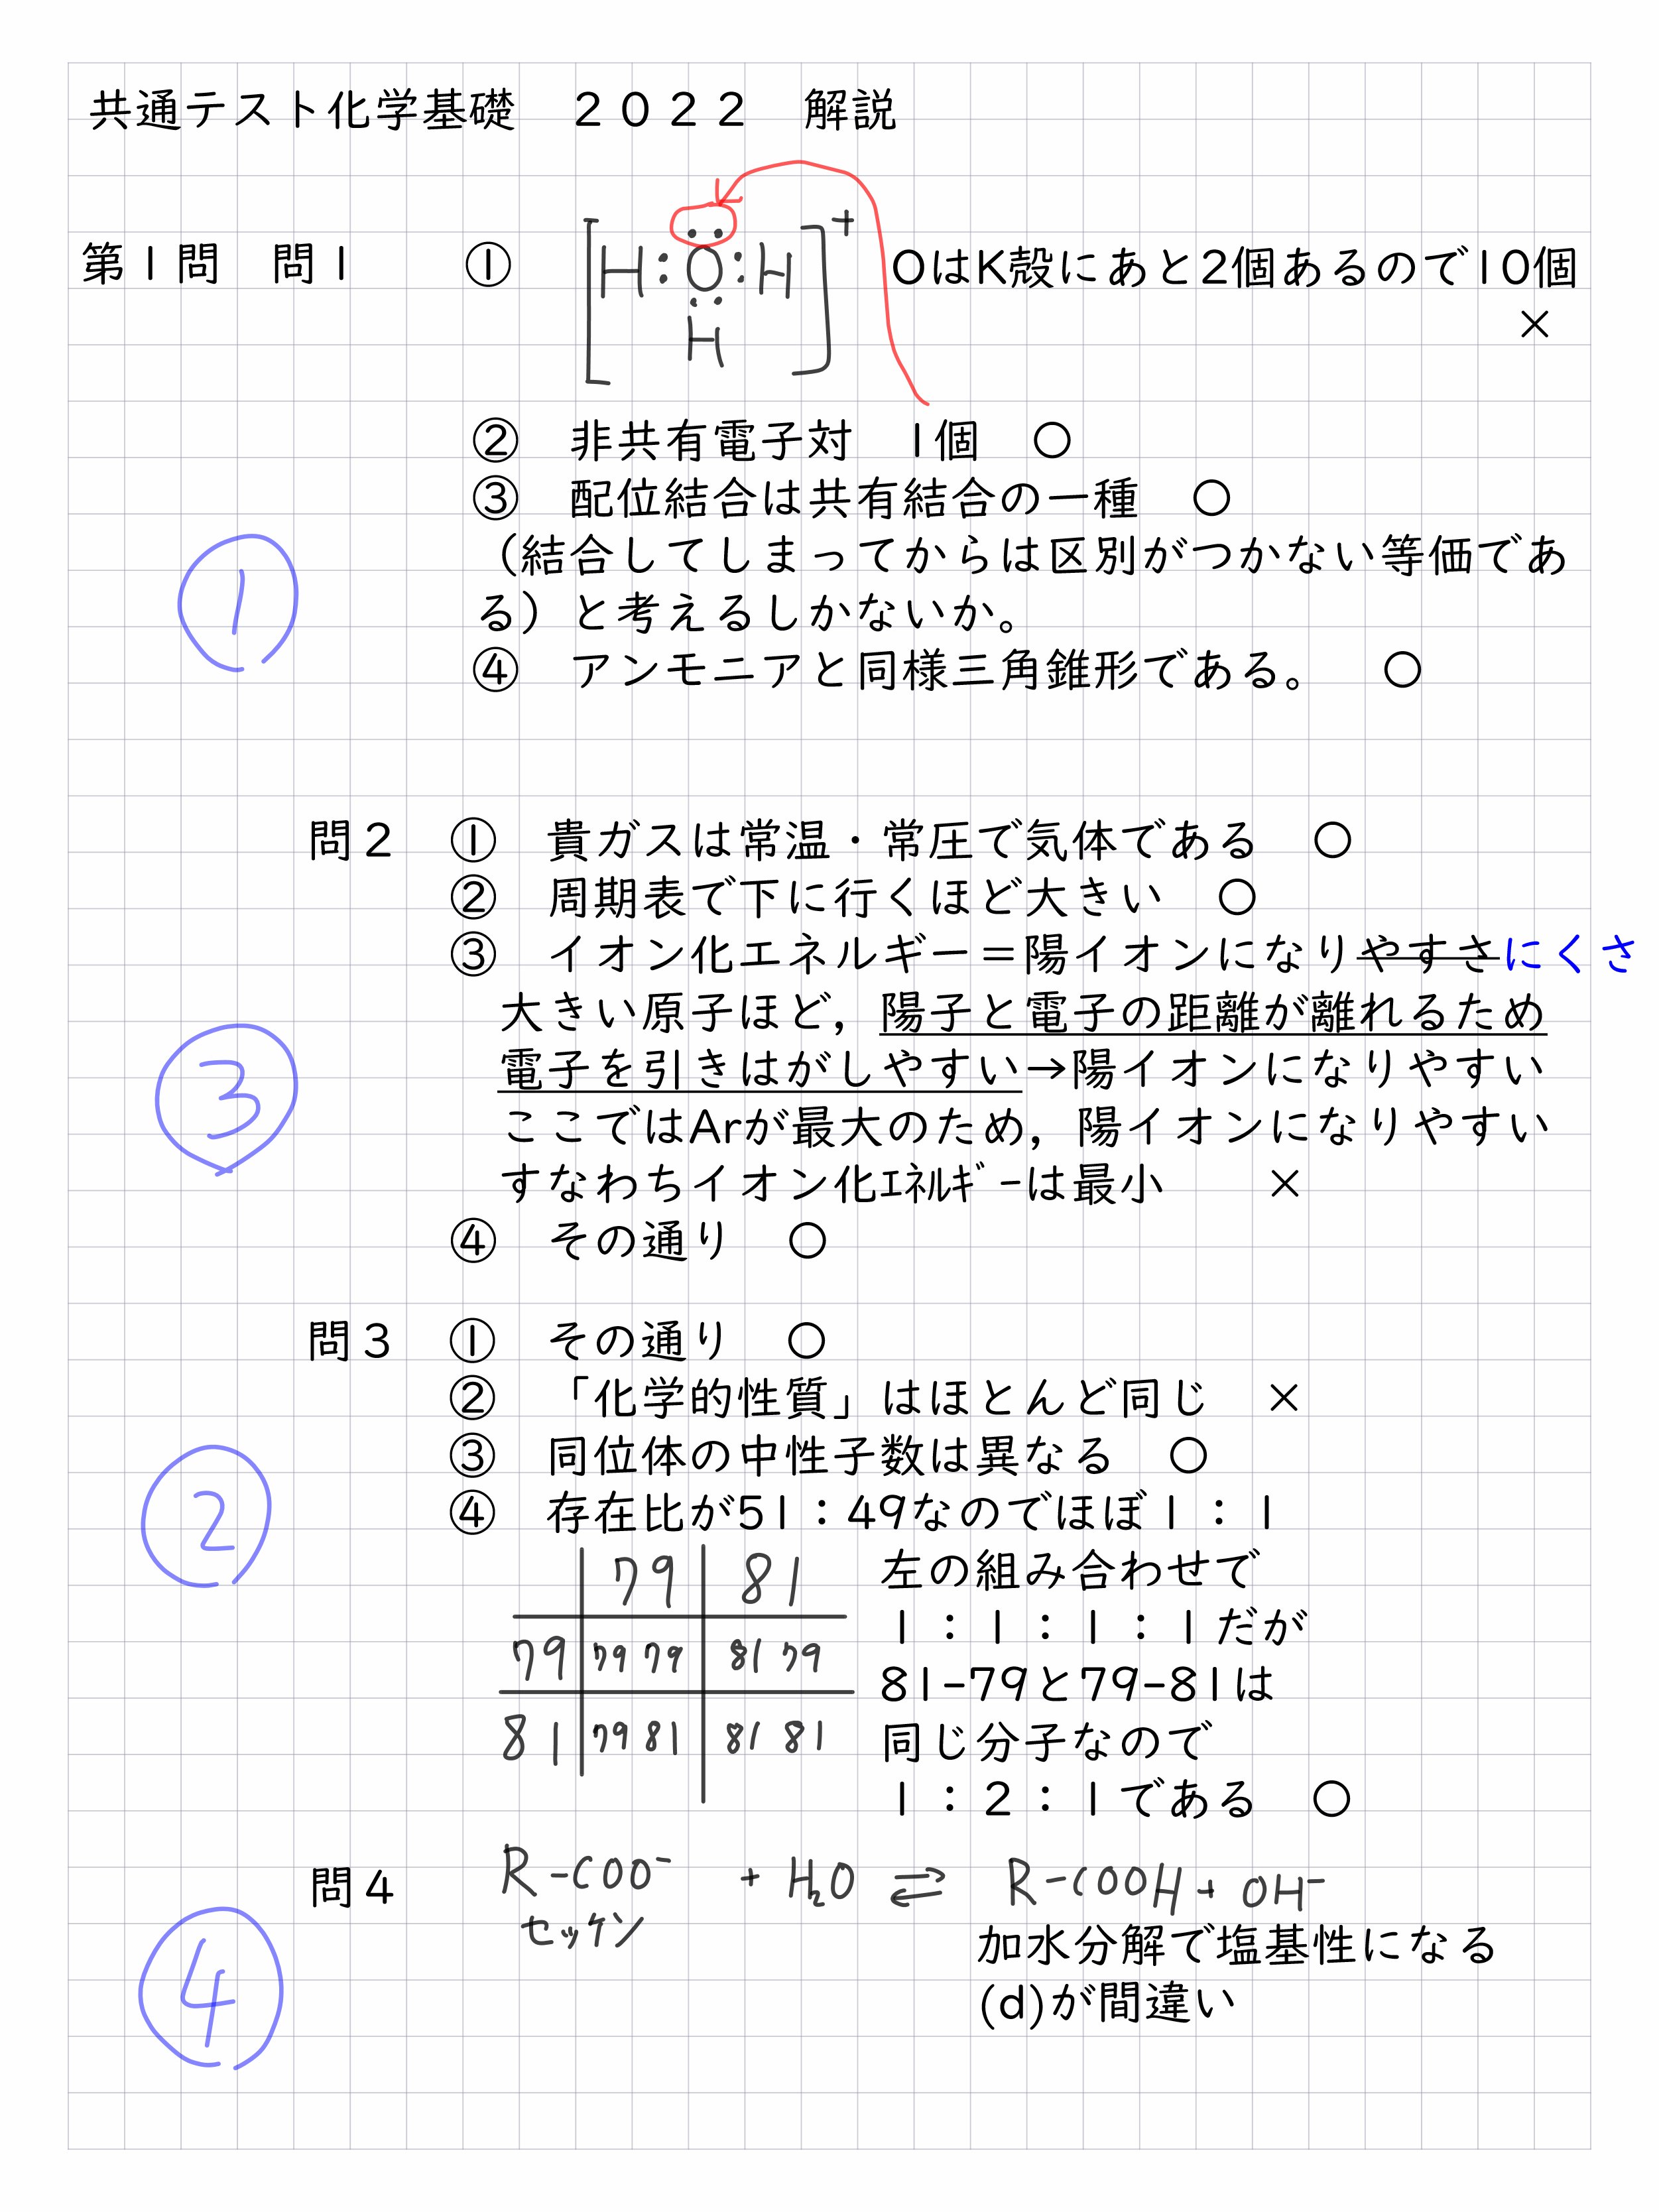 共通テスト化学基礎　２０２２　解説
第１問　問１　①　[H:O:H H]⁺　OはK殻にあと2個あるので10個
×
②　非共有電子対　1個　○
③　配位結合は共有結合の一種　○
（結合してしまってからは区別がつかない等価であ
る）と考えるしかないか。
④　アンモニアと同様三角錐形である。　○
①
問２　①　貴ガスは常温・常圧で気体である　○
②　周期表で下に行くほど大きい　○
③　イオン化エネルギー＝陽イオンになりやすさにくさ
大きい原子ほど，陽子と電子の距離が離れるため
電子を引きはがしやすい→陽イオンになりやすい
ここではArが最大のため，陽イオンになりやすい
すなわちイオン化ｴﾈﾙｷﾞｰは最小　×
④　その通り　○
③
問３　①　その通り　○
②　「化学的性質」はほとんど同じ　×
③　同位体の中性子数は異なる　○
④　存在比が51：49なのでほぼ１：１
②
79 81
79 79 79 81 79
81 79 81 81 81
左の組み合わせで
１：１：１：１だが
81-79と79-81は
同じ分子なので
１：２：１である　○
問４　R-COO⁻ + H₂O ⇄ R-COOH + OH⁻
セッケン
加水分解で塩基性になる
(d)が間違い
④